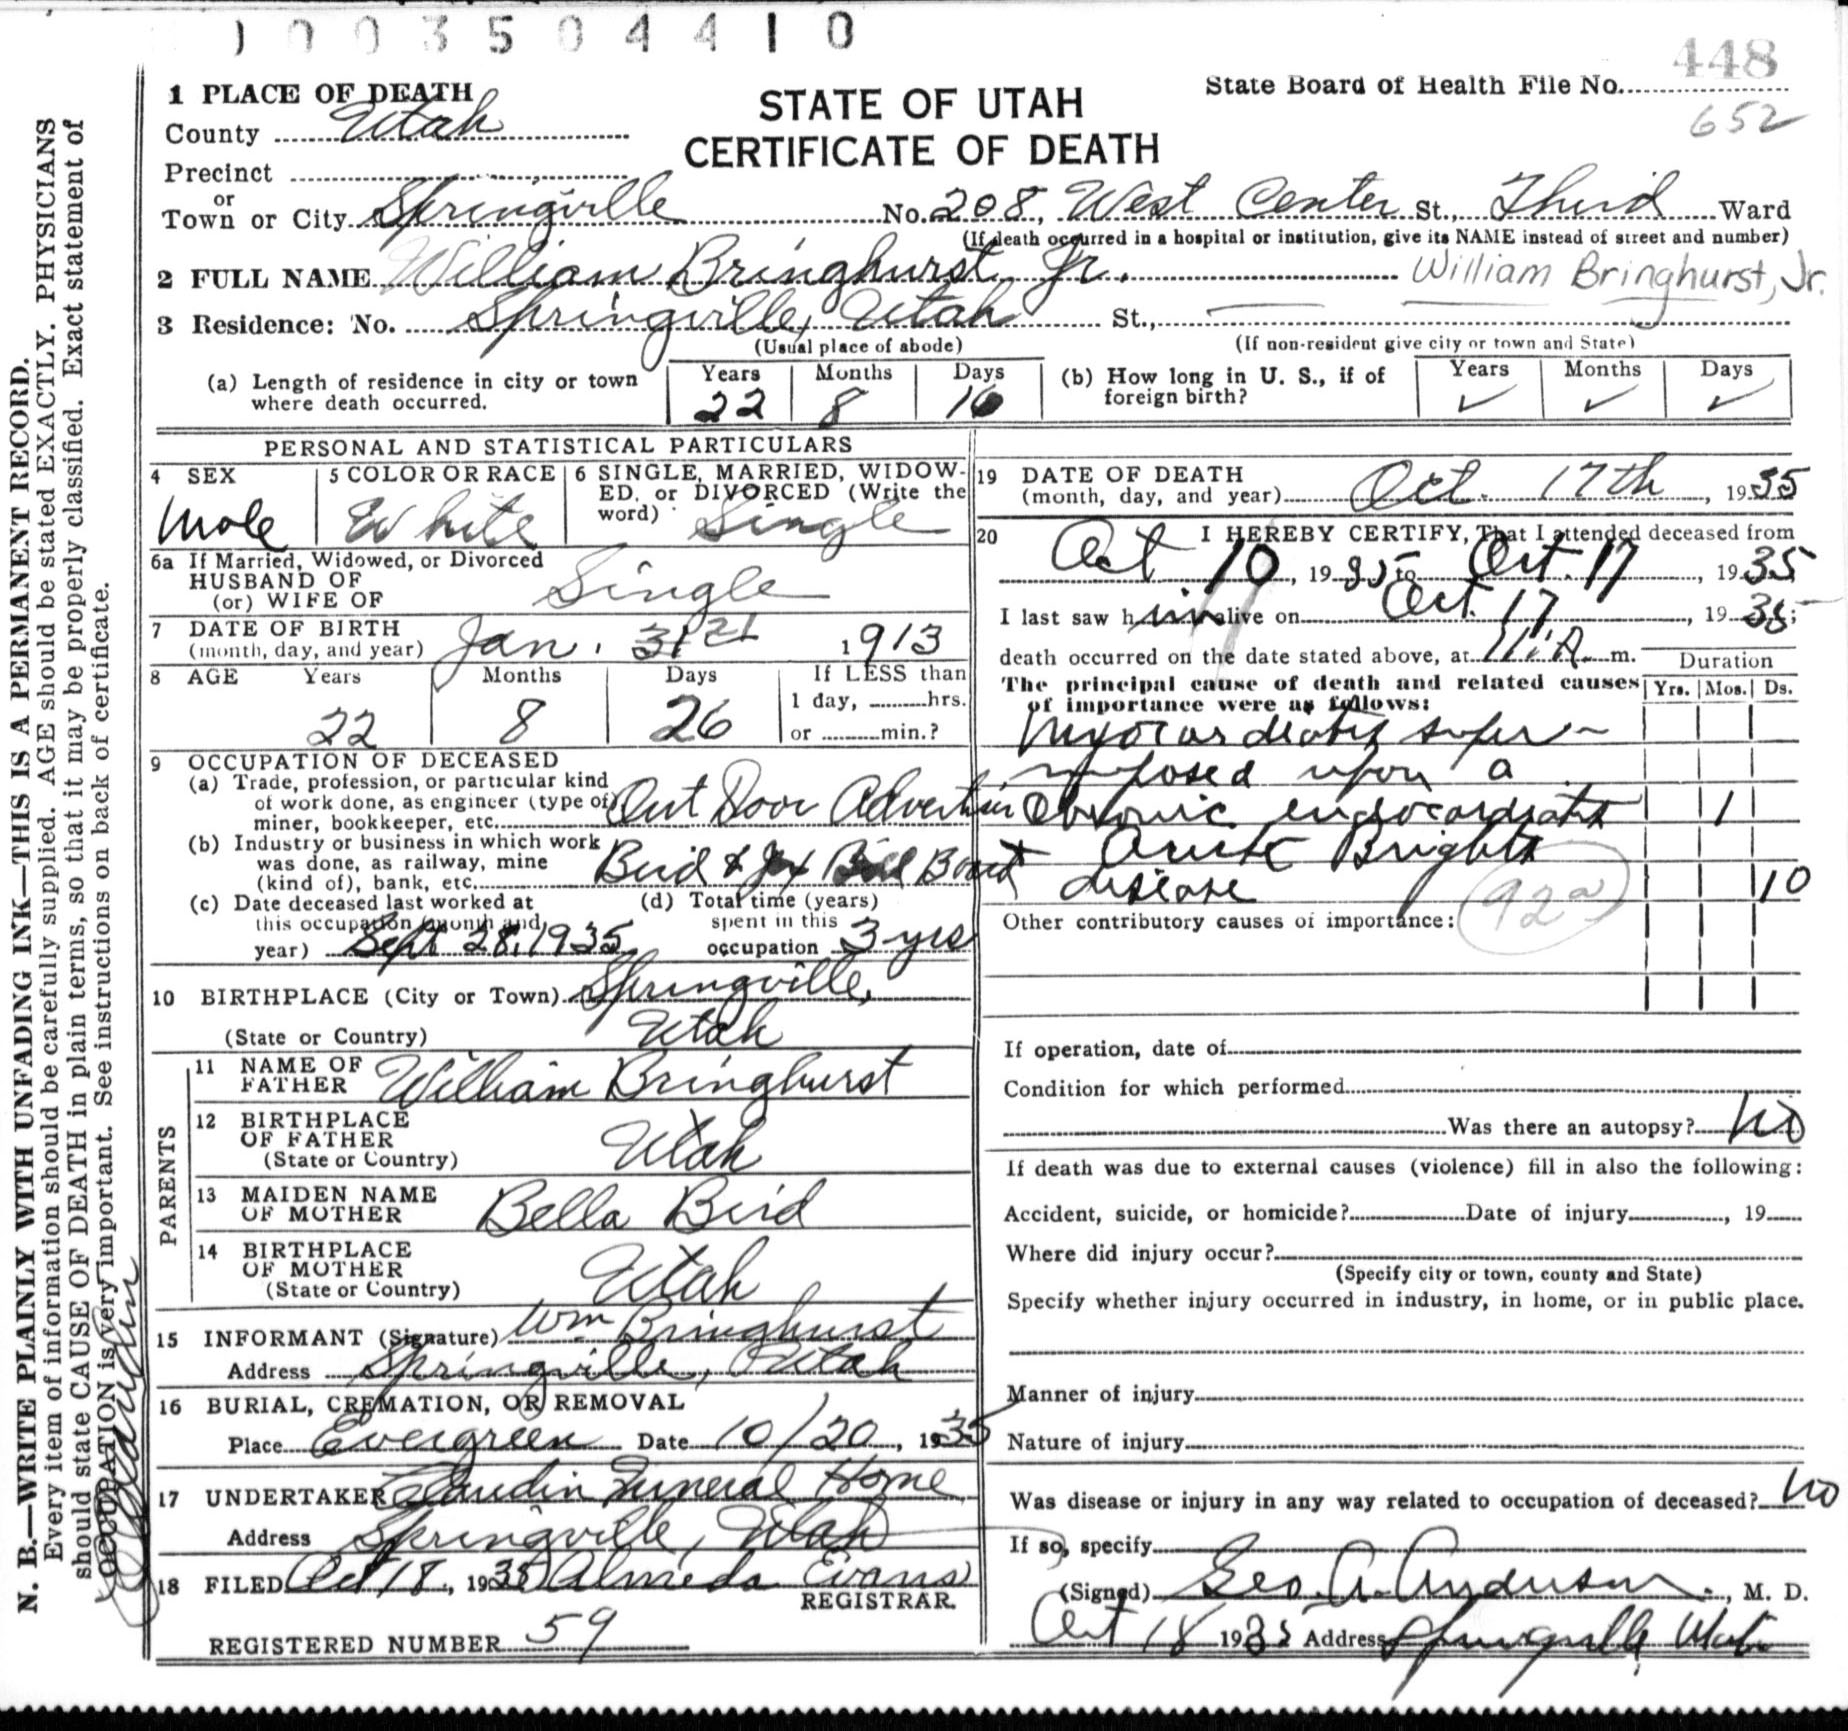 1003504410
448
1 PLACE OF DEATH
County Utah
STATE OF UTAH
CERTIFICATE OF DEATH
State Board of Health File No.
652
Precinct
or
Town or City Springville No. 208, West Center St., Third Ward
(If death occurred in a hospital or institution, give its NAME instead of street and number)
2 FULL NAME William Bringhurst Jr. William Bringhurst, Jr.
3 Residence: No. Springville, Utah St.,
(Usual place of abode) (If non-resident give city or town and State)
(a) Length of residence in city or town where death occurred. Years 22 Months 8 Days 16
(b) How long in U. S., if of foreign birth? Years Months Days
PERSONAL AND STATISTICAL PARTICULARS
4 SEX Male
5 COLOR OR RACE White
6 SINGLE, MARRIED, WIDOW-
ED, or DIVORCED (Write the
word) Single
6a If Married, Widowed, or Divorced
HUSBAND OF
(or) WIFE OF Single
7 DATE OF BIRTH
(month, day, and year) Jan. 31 21 1913
8 AGE Years 22 Months 8 Days 26
If LESS than
1 day, hrs.
or min.?
9 OCCUPATION OF DECEASED
(a) Trade, profession, or particular kind
of work done, as engineer (type of)
miner, bookkeeper, etc. Out Door
(b) Industry or business in which work
was done, as railway, mine
(kind of), bank, etc. Bird & Jex Bill Board
(c) Date deceased last worked at
this occupation (month and
year) Sept 28, 1935
(d) Total time (years)
spent in this
occupation 3 yrs
10 BIRTHPLACE (City or Town) Springville,
(State or Country) Utah
PARENTS
11 NAME OF
FATHER William Bringhurst
12 BIRTHPLACE
OF FATHER
(State or Country) Utah
13 MAIDEN NAME
OF MOTHER Bella Bird
14 BIRTHPLACE
OF MOTHER
(State or Country) Utah
15 INFORMANT (Signature) Wm Bringhurst
Address Springville, Utah
16 BURIAL, CREMATION, OR REMOVAL
Place Evergreen Date 10/20, 1935
17 UNDERTAKER Claudin Funeral Home
Address Springville, Utah
18 FILED Oct 18, 1935 Almeda Evans
REGISTRAR.
REGISTERED NUMBER 59
19 DATE OF DEATH
(month, day, and year) Oct. 17th, 1935
20 I HEREBY CERTIFY, That I attended deceased from
Oct 10, 1935 to Oct. 17, 1935
I last saw him alive on Oct. 17, 1935;
death occurred on the date stated above, at m.
Duration
The principal cause of death and related causes
of importance were as follows:
Yrs. Mos. Ds.
Myocardiatis super-
imposed upon a
Chronic endocardiatis 1
Acute Brights
disease 10
Other contributory causes of importance: 92a
If operation, date of
Condition for which performed
Was there an autopsy? No
If death was due to external causes (violence) fill in also the following:
Accident, suicide, or homicide? Date of injury, 19
Where did injury occur?
(Specify city or town, county and State)
Specify whether injury occurred in industry, in home, or in public place.
Manner of injury
Nature of injury
Was disease or injury in any way related to occupation of deceased? No
If so, specify
(Signed) Geo. A. Anderson, M. D.
Oct 18 1935 Address Springville, Utah
N. B.—WRITE PLAINLY WITH UNFADING INK—THIS IS A PERMANENT RECORD.
Every item of information should be carefully supplied. AGE should be stated EXACTLY. PHYSICIANS
should state CAUSE OF DEATH in plain terms, so that it may be properly classified. Exact statement of
OCCUPATION is very important. See instructions on back of certificate.